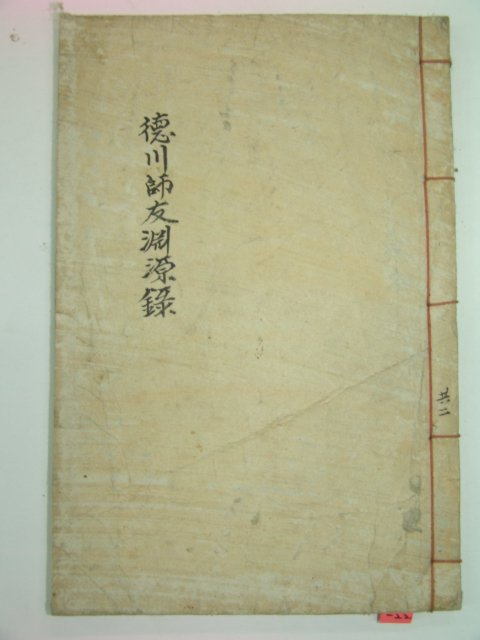 德川師友淵源錄
共二